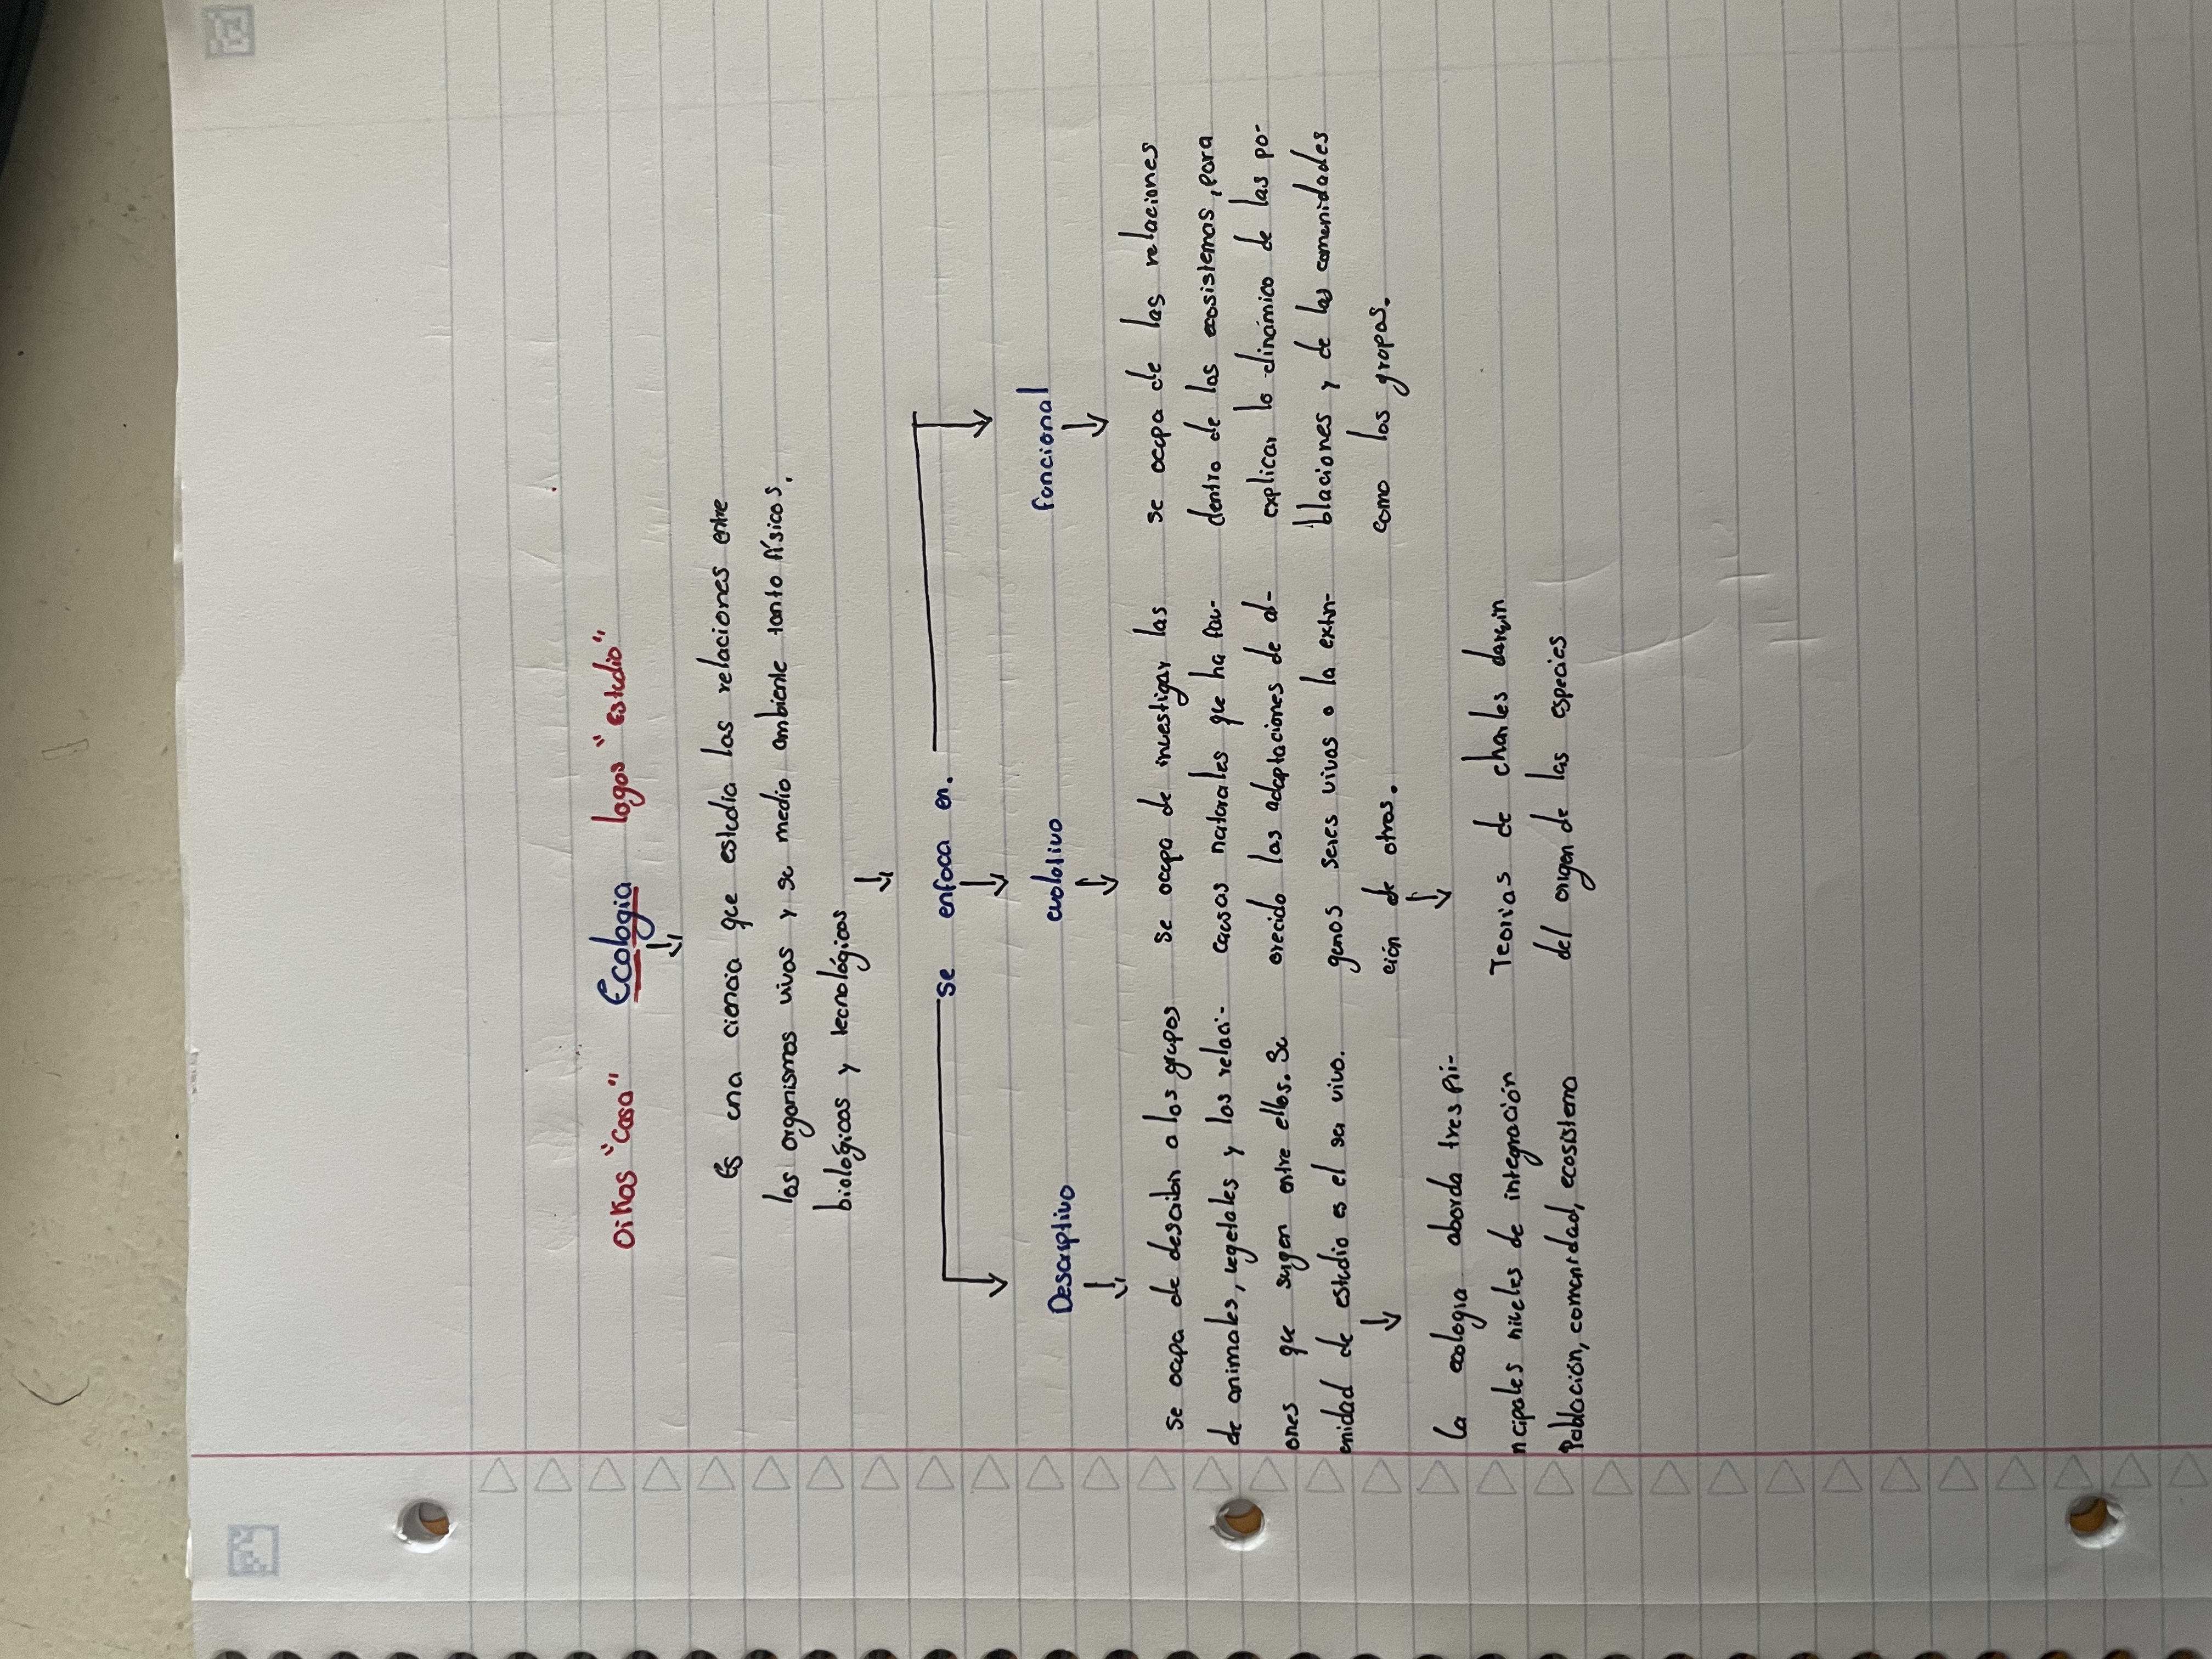 Oikos "Casa" Ecologia logos "estudio"
Es una ciencia que estudia las relaciones entre
los organismos vivos y su medio ambiente tanto físicos,
biológicos y tecnológicos
se enfoca en.
Descriptivo
evolutivo
funcional
Se ocupa de describir a los grupos
de animales, vegetales y las relaci-
ones que surgen entre ellos. Su
unidad de estudio es el ser vivo.
La ecologia aborda tres pri-
ncipales niveles de integración
Población, comunidad, ecosistema
se ocupa de investigar las
causas naturales que ha fav-
orecido las adaptaciones de al-
gunos seres vivos o la extin-
ción de otros.
Teorias de charles darwin
del origen de las especies
se ocupa de las relaciones
dentro de los ecosistemas, para
explicar la dinámica de las po-
blaciones y de las comunidades
como los grupos.